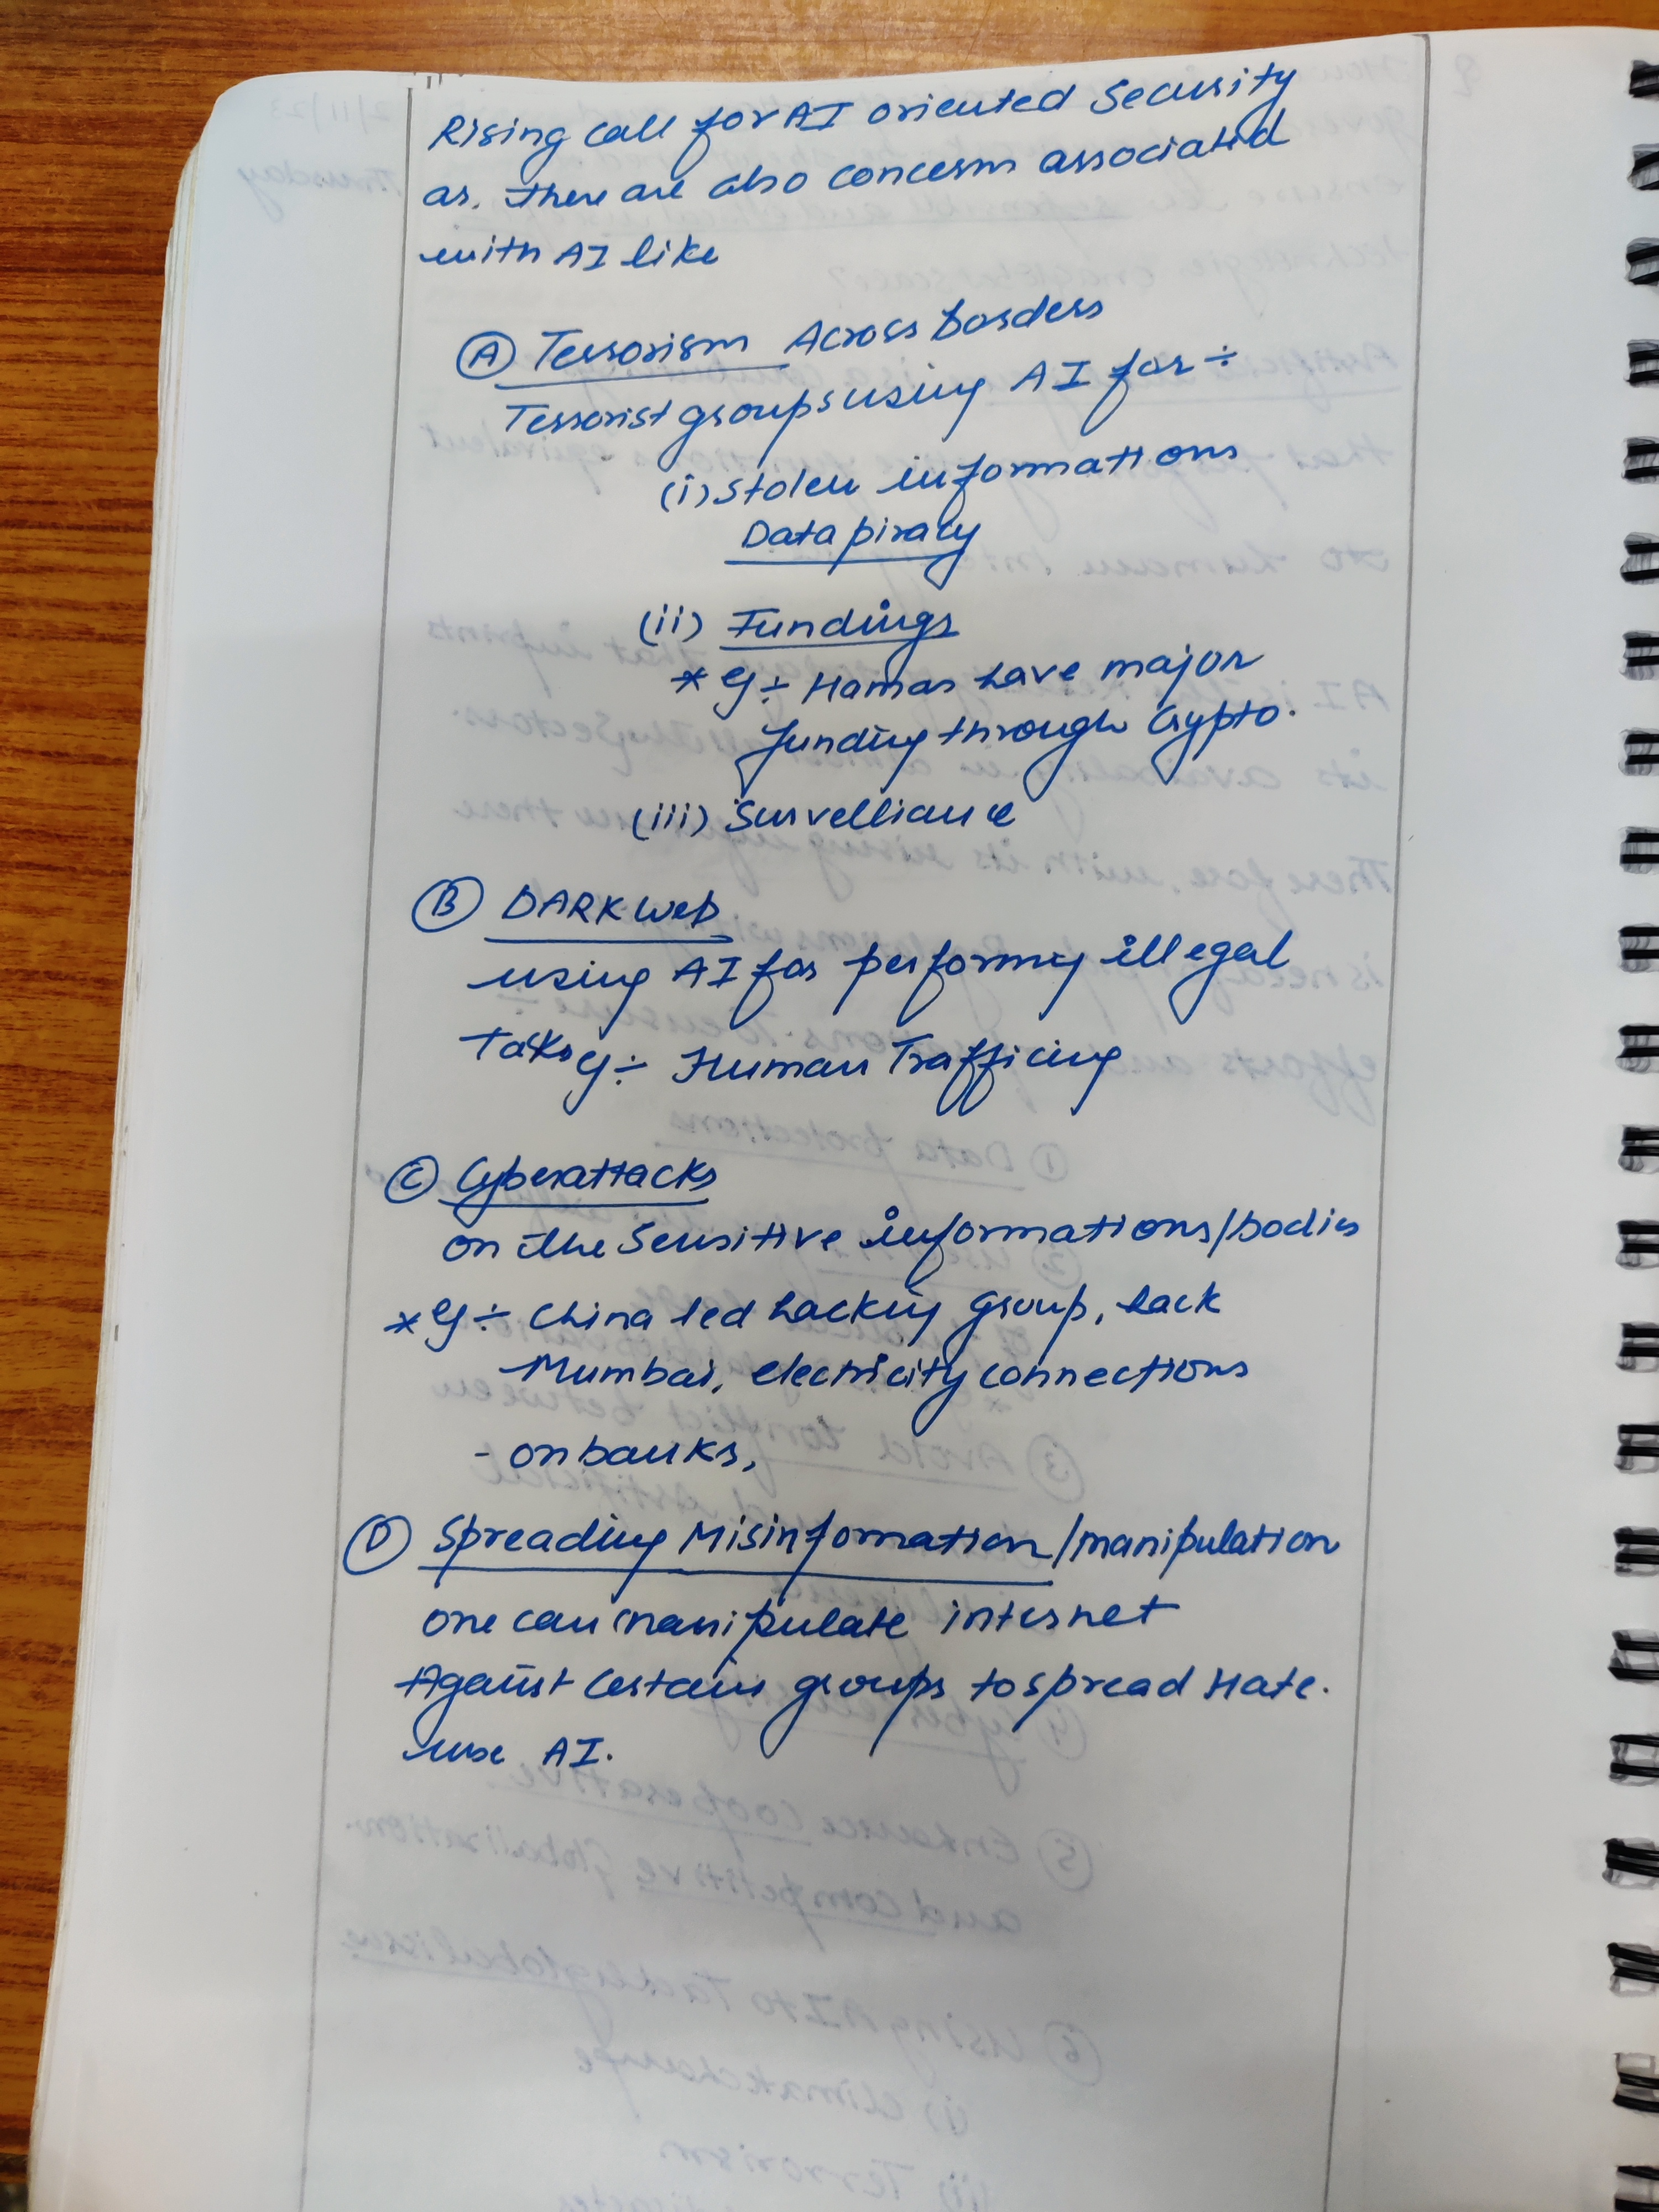 Rising call for AI oriented Security
as. there are also concern associated
with AI like
(A) Terrorism Across borders
Terrorist groups using AI for ÷
(i) stolen informations
Data piracy
(ii) Fundings
* eg ÷ Hamas have major
funding through Crypto.
(iii) Survelliance
(B) DARK Web
using AI for performing illegal
Taks eg ÷ Human Trafficing
(C) Cyberattacks
on the Sensitive informations/bodies
* eg ÷ China led hacking group, hack
Mumbai, electricity connections
- on banks,
(D) Spreading Misinformation/manipulation
one can manipulate internet
Against certain groups to spread Hate.
use AI.